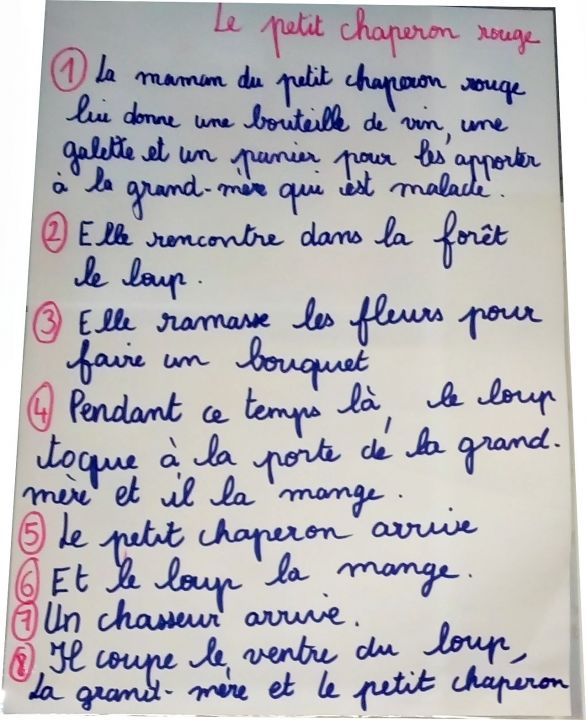 Le petit chaperon rouge
① La maman du petit chaperon rouge
lui donne une bouteille de vin, une
galette et un panier pour les apporter
à la grand-mère qui est malade.
② Elle rencontre dans la forêt
le loup.
③ Elle ramasse les fleurs pour
faire un bouquet
④ Pendant ce temps là, le loup
toque à la porte de la grand-
mère et il la mange.
⑤ Le petit chaperon arrive
⑥ Et le loup la mange.
⑦ Un chasseur arrive.
⑧ Il coupe le ventre du loup,
La grand-mère et le petit chaperon